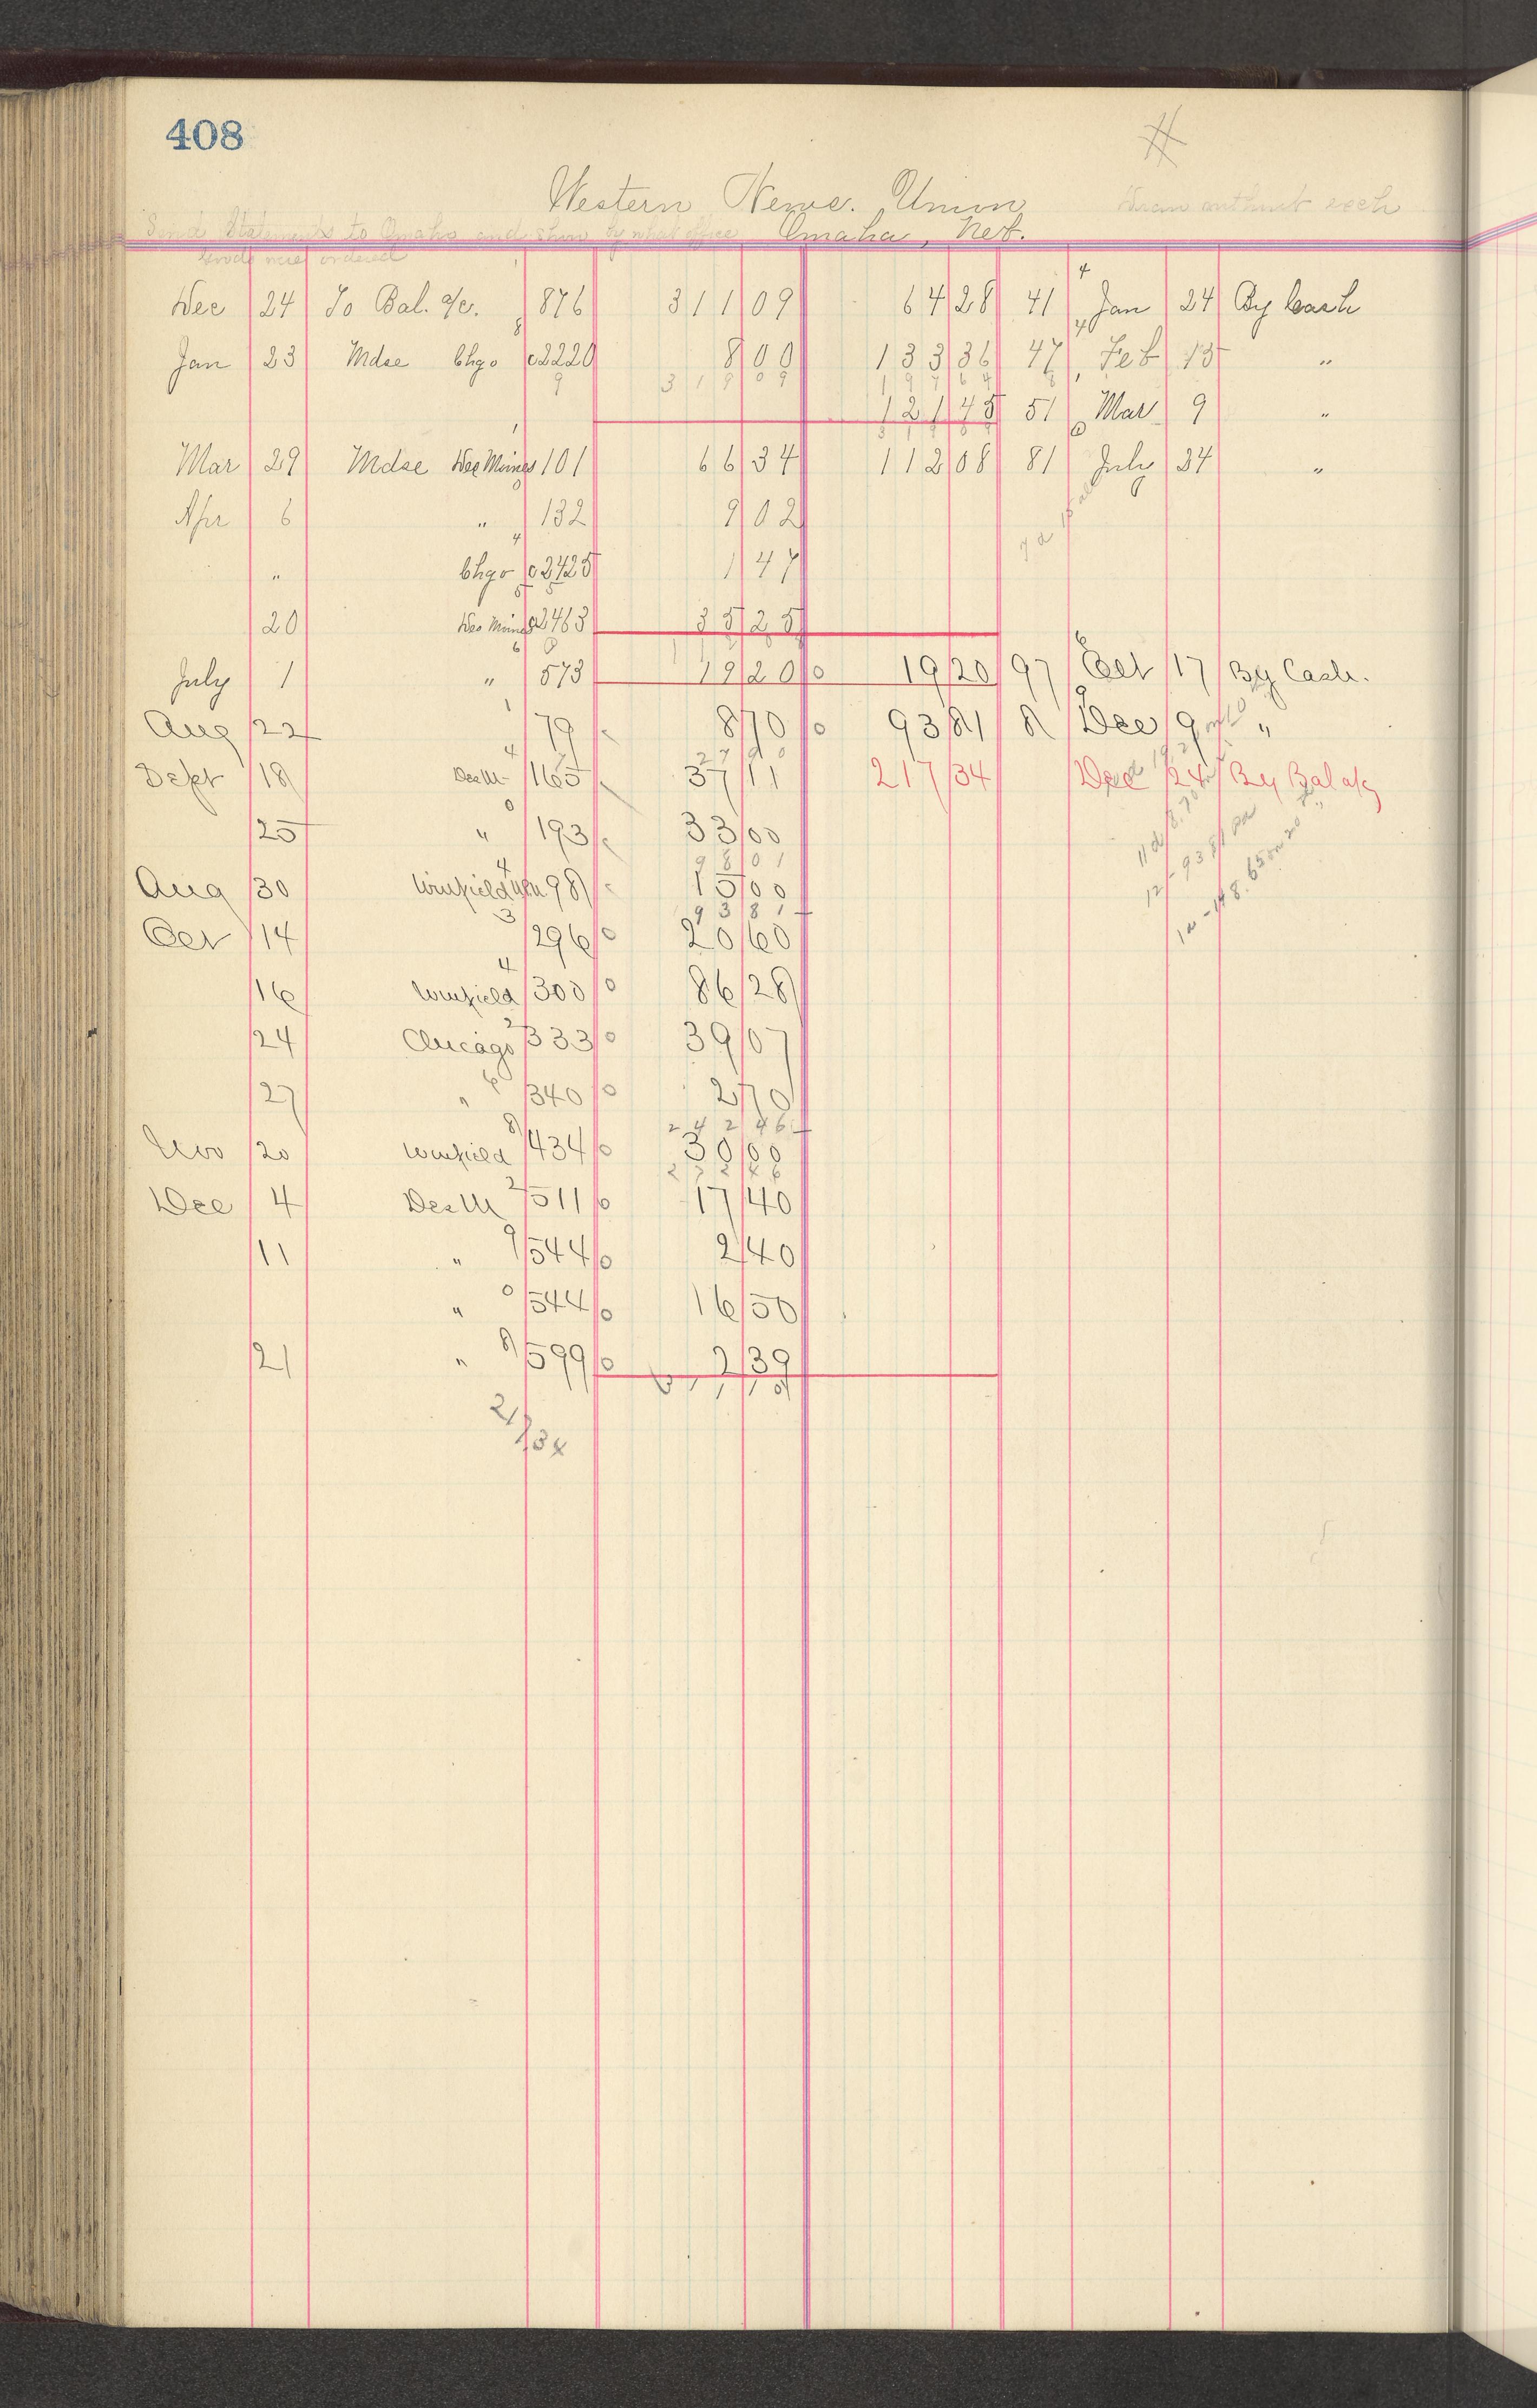 408
#
Western News. Union
Omaha, Neb.
Send Statements to Omaha and show by what office
Goods were ordered
Draw without exch
Dec 24 To Bal. a/c. 876 311 09 64 28 41 Jan 24 By Cash
Jan 23 Mdse Chgo 2220 8 00 133 36 47 Feb 13 "
319 09 197 64
121 45 51 Mar 9 "
Mar 29 Mdse Des Moines 101 66 34 112 08 81 July 24 "
Apr 6 " 132 9 02
" Chgo 2425 1 47
20 Des Moines 2463 35 25
July 1 " 573 19 20 0 19 20 97 Oct 17 By Cash.
Aug 22 79 8 70 0 93 81 8 Dec 9 "
27 90
Sept 18 Des M 165 37 11 217 34 Dec 24 By Bal a/c
25 " 193 33 00
98 01
Aug 30 Winfield 98 15 00
93 81
Oct 14 296 0 20 60
16 Winfield 300 0 86 28
24 Chicago 333 0 39 07
27 " 340 0 2 70
242 46
Nov 20 Winfield 434 0 30 00
272 46
Dec 4 Des M 511 0 17 40
11 " 544 0 2 40
" 544 0 16 50
21 " 599 0 2 39